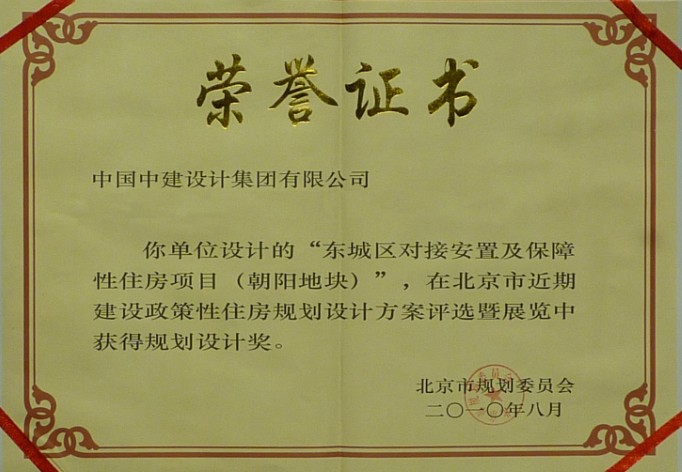 荣誉证书
中国中建设计集团有限公司
你单位设计的“东城区对接安置及保障
性住房项目（朝阳地块）”，在北京市近期
建设政策性住房规划设计方案评选暨展览中
获得规划设计奖。
北京市规划委员会
二〇一〇年八月